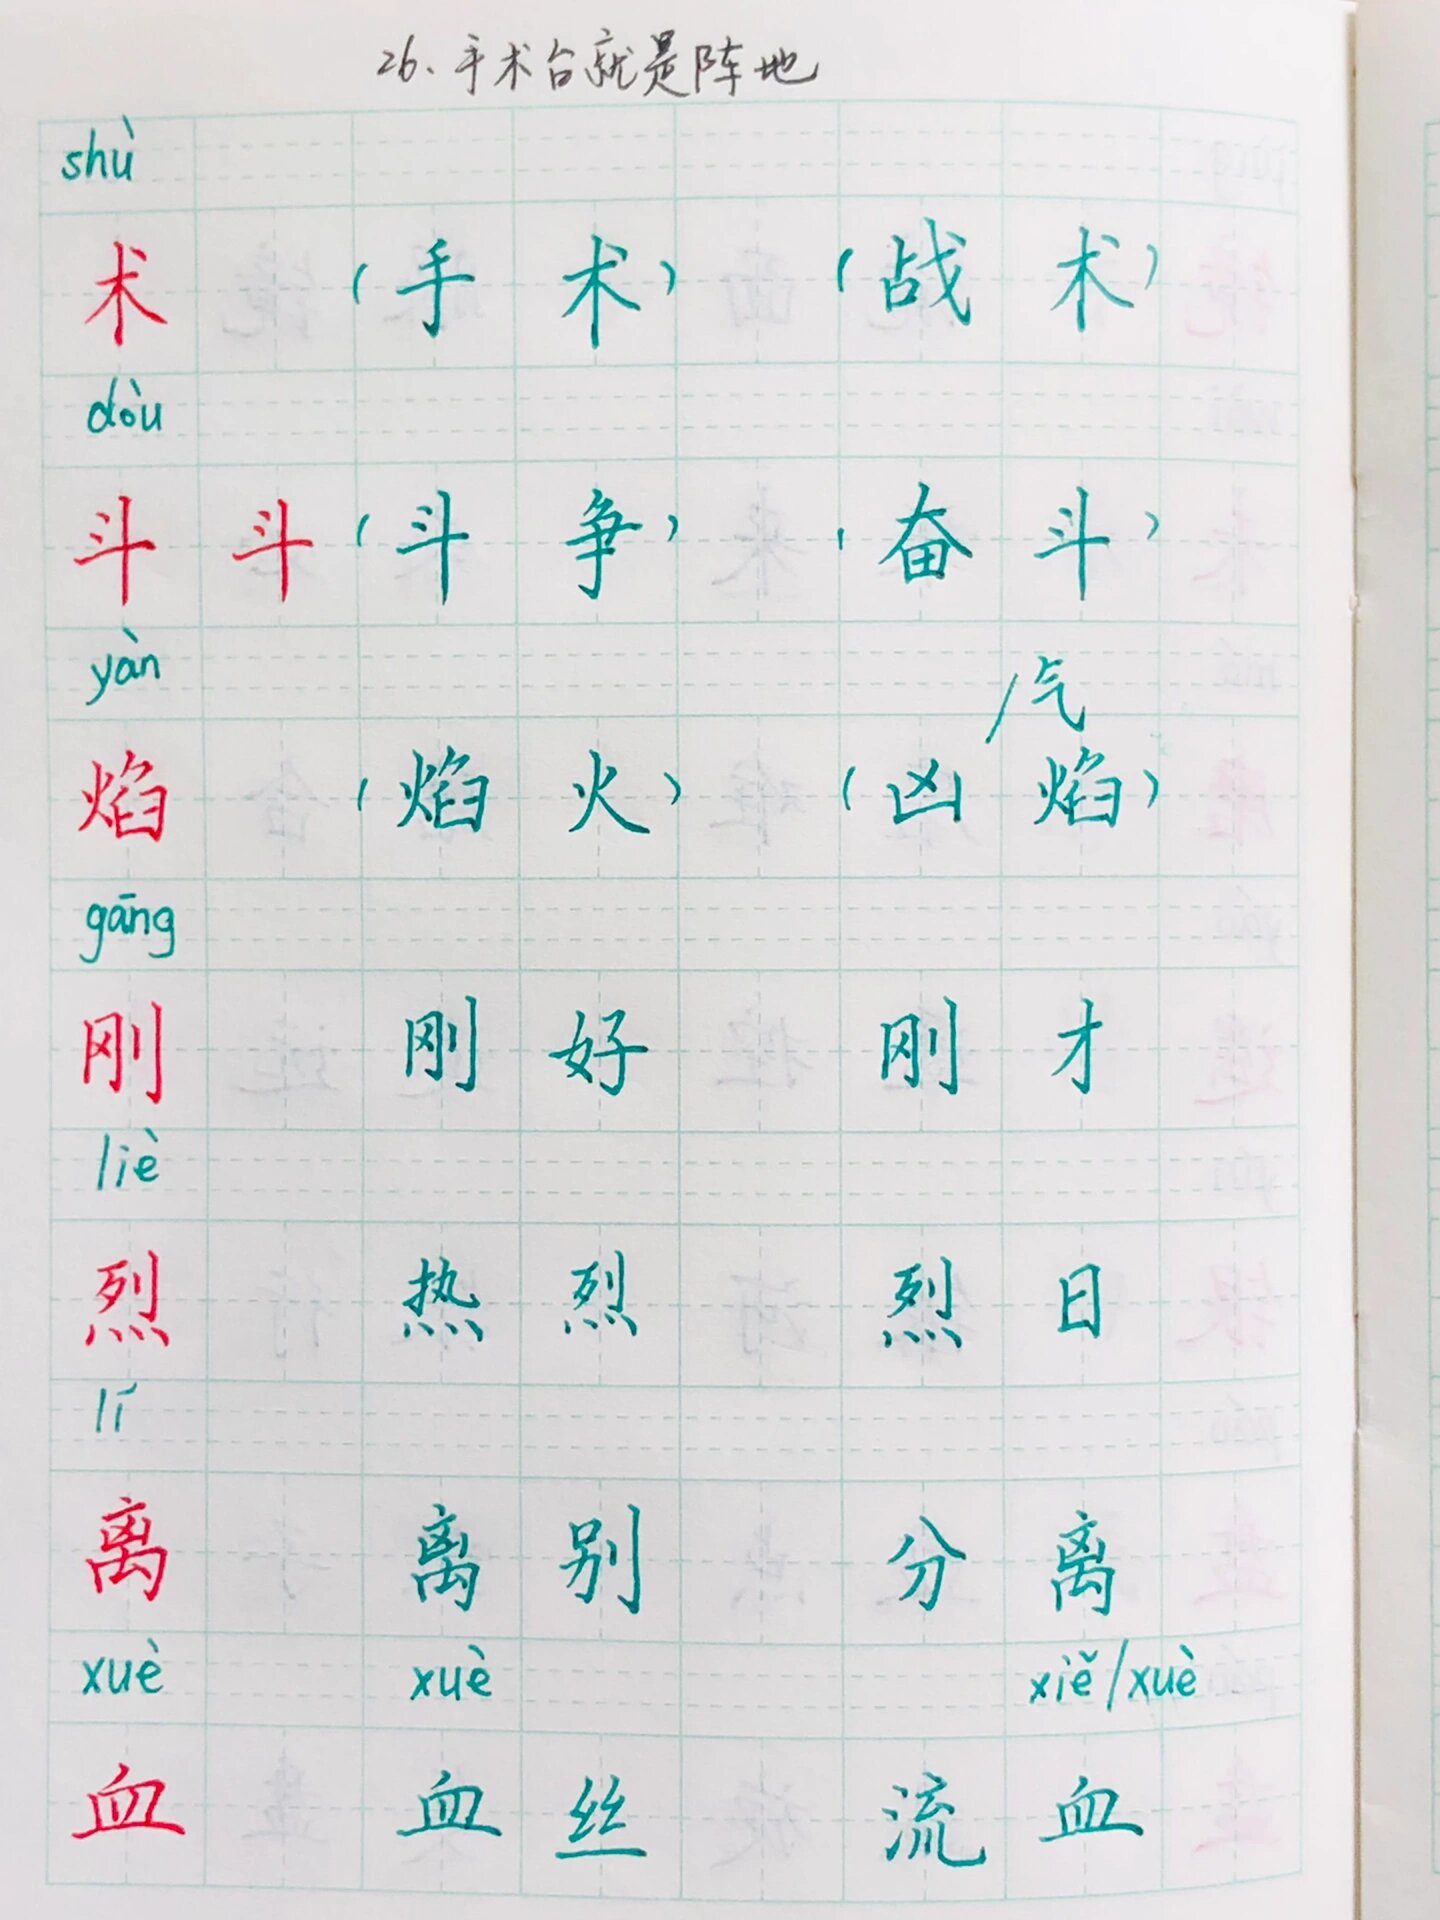 26、手术台就是阵地
shù
术 （手术） （战术）
dòu
斗 斗（斗争） （奋斗）
yàn
/气
焰 （焰火） （凶焰）
gāng
刚 刚好 刚才
liè
烈 热烈 烈日
lí
离 离别 分离
xuè xuè xiě/xuè
血 血丝 流血